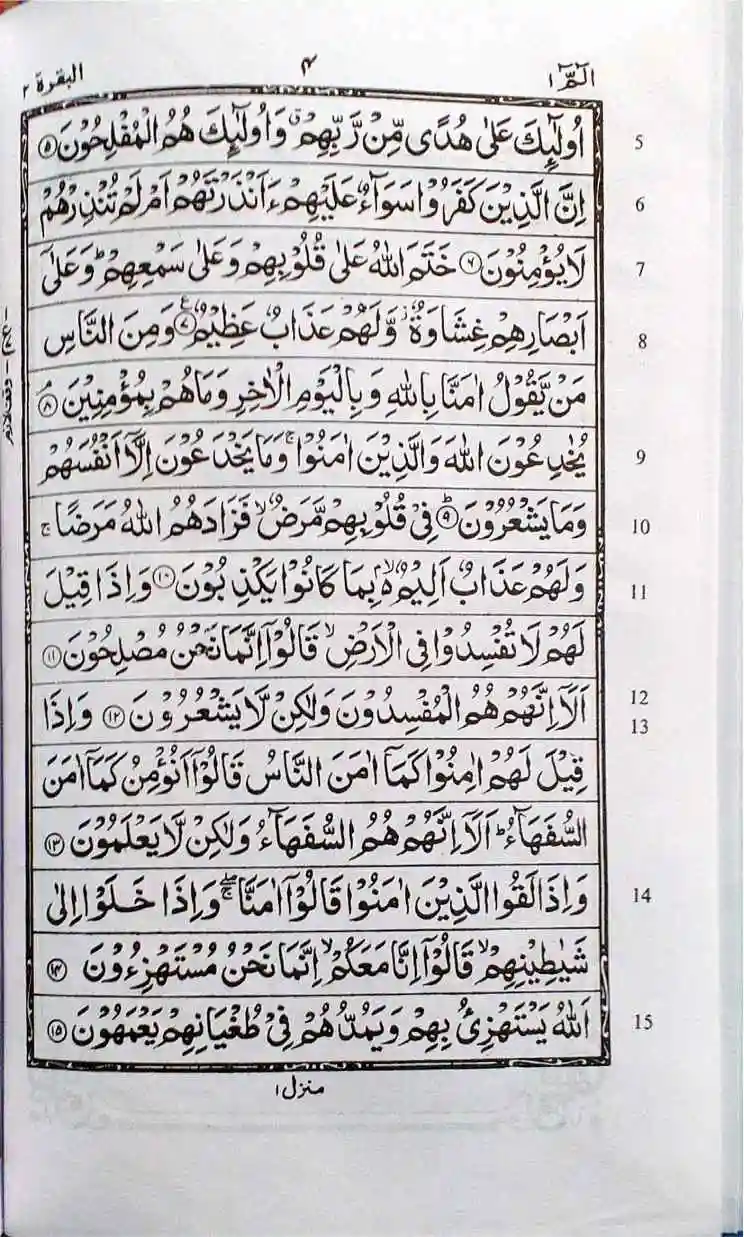 الٓمّٓ ١
٤
البقرة ٢
اُولٰٓئِكَ عَلٰى هُدًى مِّنْ رَّبِّهِمْ ۗ وَاُولٰٓئِكَ هُمُ الْمُفْلِحُوْنَ ۝٥ 5
اِنَّ الَّذِيْنَ كَفَرُوْا سَوَآءٌ عَلَيْهِمْ ءَاَنْذَرْتَهُمْ اَمْ لَمْ تُنْذِرْهُمْ 6
لَا يُؤْمِنُوْنَ ۝٦ خَتَمَ اللّٰهُ عَلٰى قُلُوْبِهِمْ وَعَلٰى سَمْعِهِمْ ؕ وَعَلٰٓى 7
اَبْصَارِهِمْ غِشَاوَةٌ ؗ وَّلَهُمْ عَذَابٌ عَظِيْمٌ ۝٧ وَمِنَ النَّاسِ 8
مَنْ يَّقُوْلُ اٰمَنَّا بِاللّٰهِ وَبِالْيَوْمِ الْاٰخِرِ وَمَا هُمْ بِمُؤْمِنِيْنَ ۝٨
يُخٰدِعُوْنَ اللّٰهَ وَالَّذِيْنَ اٰمَنُوْا ۚ وَمَا يَخْدَعُوْنَ اِلَّآ اَنْفُسَهُمْ 9
وَمَا يَشْعُرُوْنَ ۝٩ؕ فِيْ قُلُوْبِهِمْ مَّرَضٌ ۙ فَزَادَهُمُ اللّٰهُ مَرَضًا ۚ 10
وَلَهُمْ عَذَابٌ اَلِيْمٌۢ ۙ بِمَا كَانُوْا يَكْذِبُوْنَ ۝١٠ وَاِذَا قِيْلَ 11
لَهُمْ لَا تُفْسِدُوْا فِى الْاَرْضِ ۙ قَالُوْٓا اِنَّمَا نَحْنُ مُصْلِحُوْنَ ۝١١
اَلَآ اِنَّهُمْ هُمُ الْمُفْسِدُوْنَ وَلٰكِنْ لَّا يَشْعُرُوْنَ ۝١٢ وَاِذَا 12 13
قِيْلَ لَهُمْ اٰمِنُوْا كَمَآ اٰمَنَ النَّاسُ قَالُوْٓا اَنُؤْمِنُ كَمَآ اٰمَنَ
السُّفَهَآءُ ؕ اَلَآ اِنَّهُمْ هُمُ السُّفَهَآءُ وَلٰكِنْ لَّا يَعْلَمُوْنَ ۝١٣
وَاِذَا لَقُوا الَّذِيْنَ اٰمَنُوْا قَالُوْٓا اٰمَنَّا ۖۚ وَاِذَا خَلَوْا اِلٰى 14
شَيٰطِيْنِهِمْ ۙ قَالُوْٓا اِنَّا مَعَكُمْ ۙ اِنَّمَا نَحْنُ مُسْتَهْزِءُوْنَ ۝١٤
اَللّٰهُ يَسْتَهْزِئُ بِهِمْ وَيَمُدُّهُمْ فِيْ طُغْيَانِهِمْ يَعْمَهُوْنَ ۝١٥ 15
منزل ١